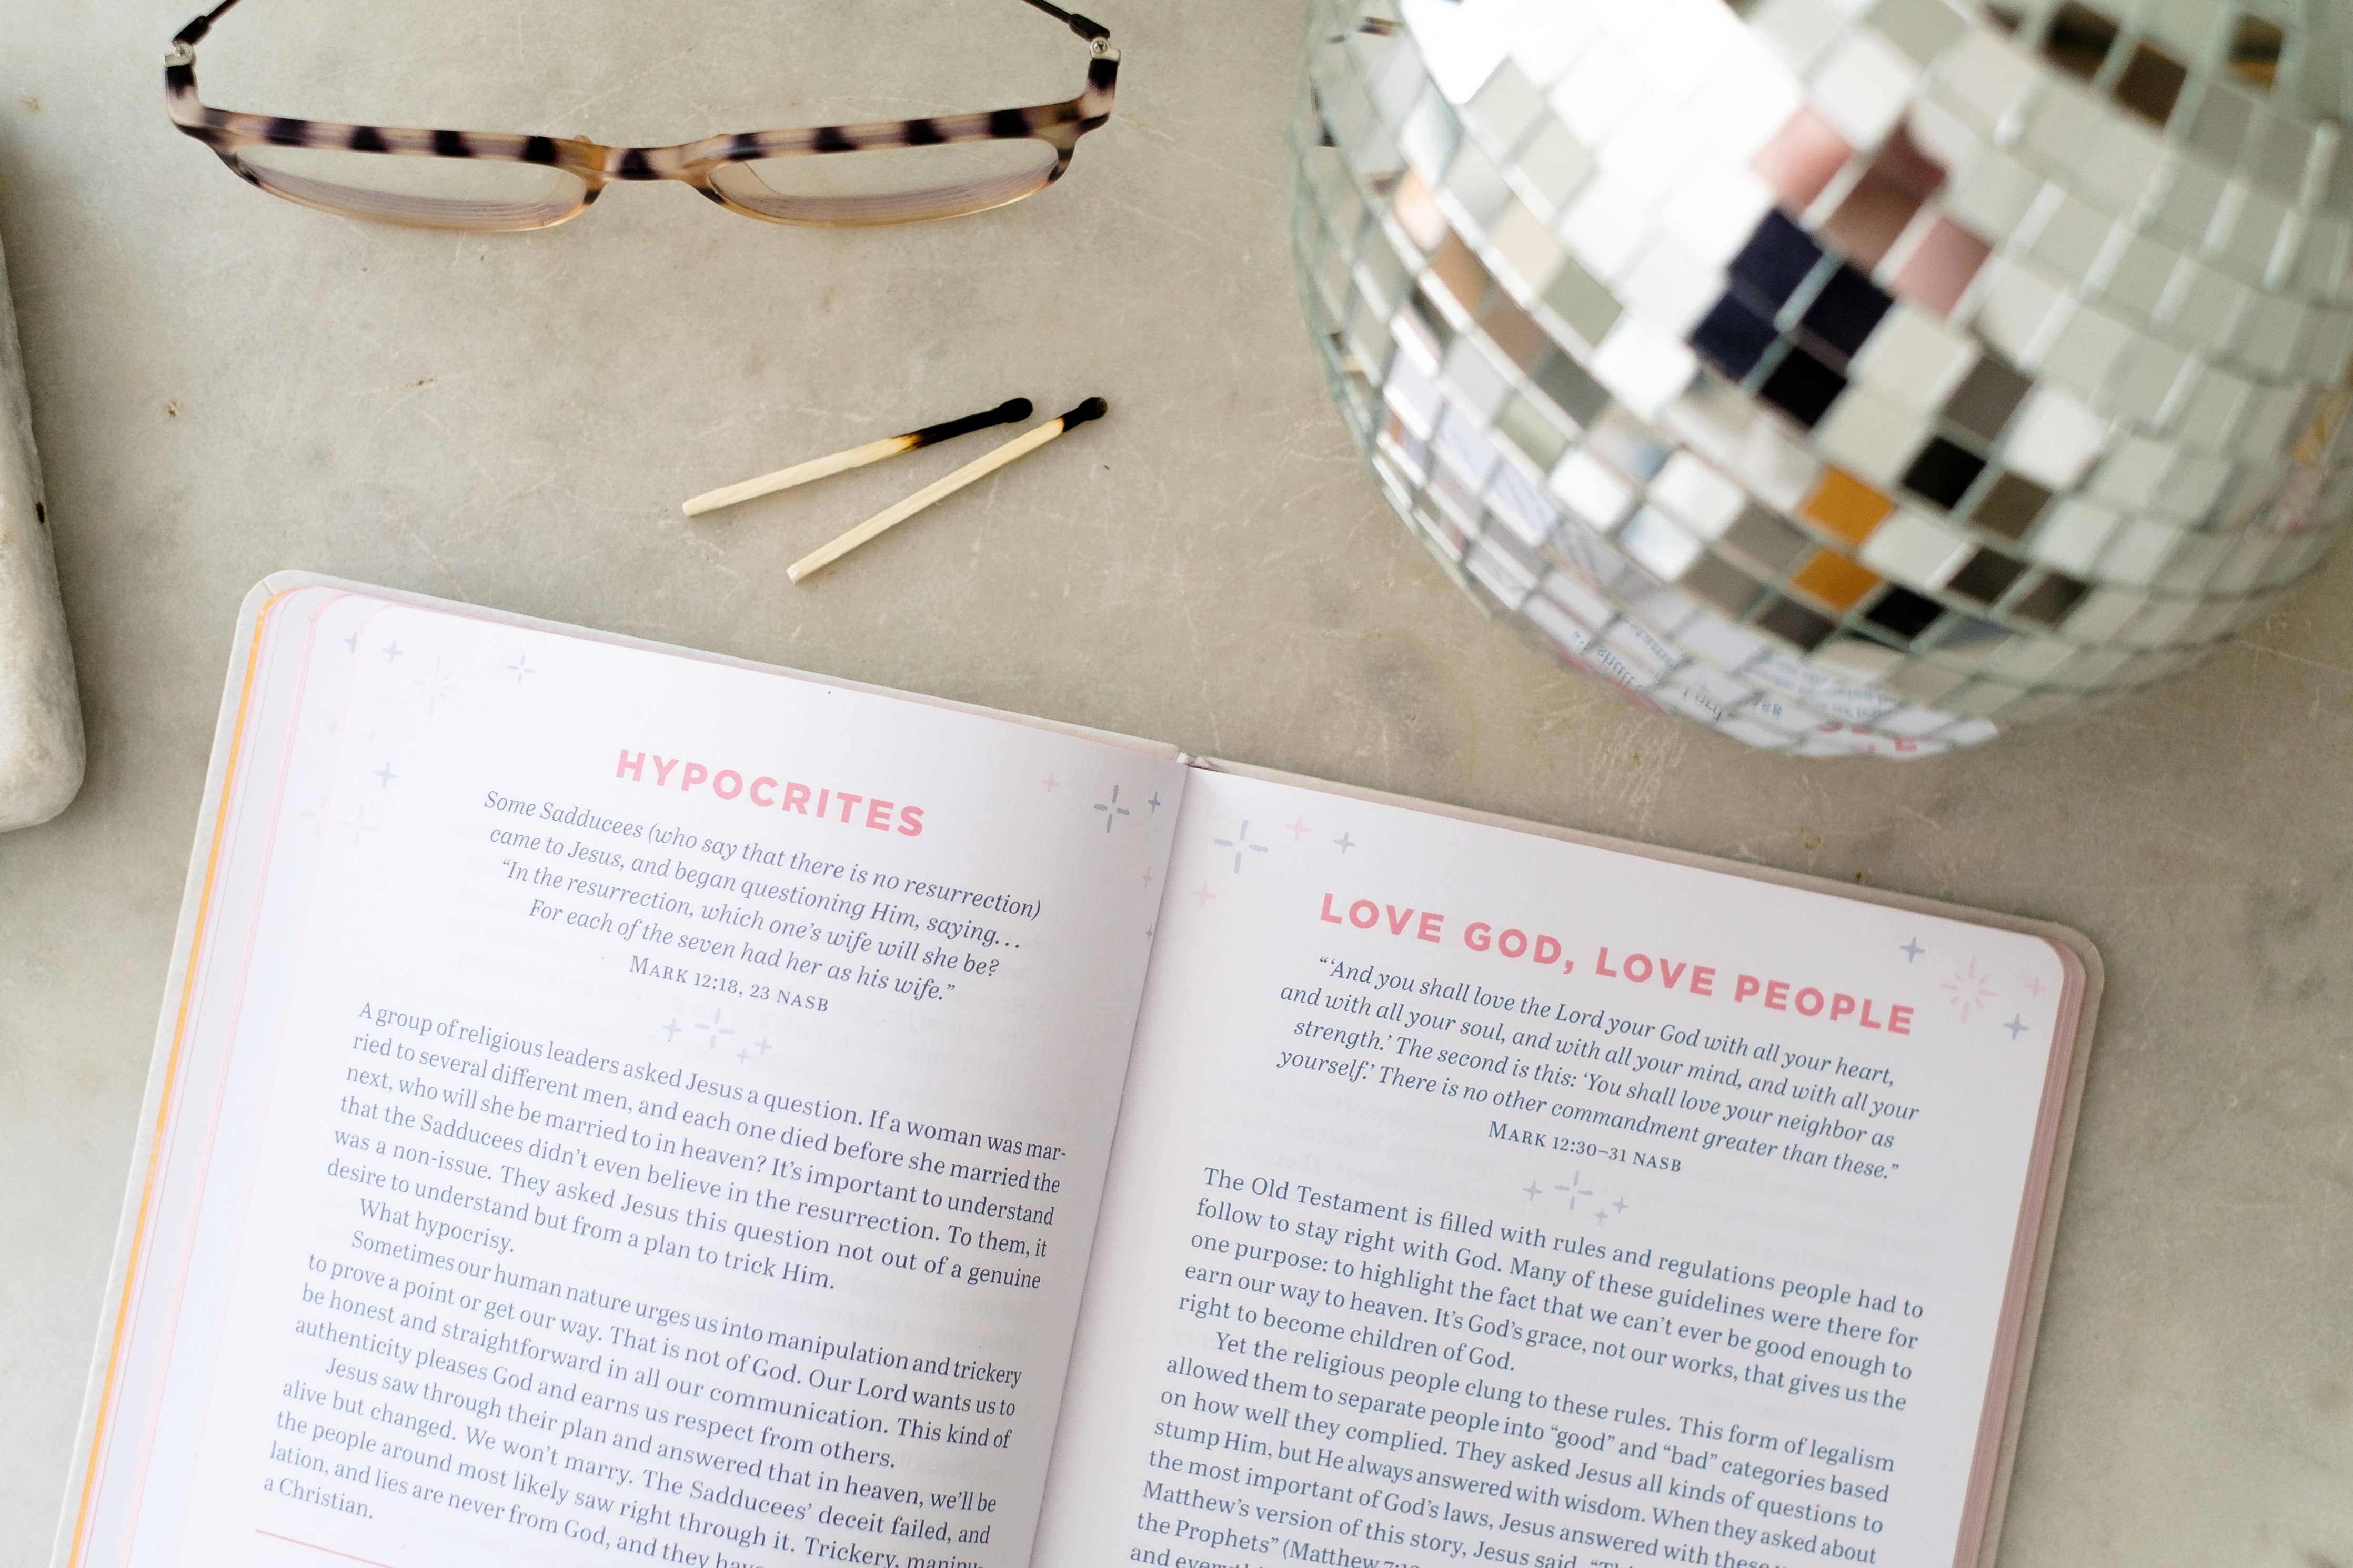 HYPOCRITES
Some Sadducees (who say that there is no resurrection)
came to Jesus, and began questioning Him, saying...
“In the resurrection, which one’s wife will she be?
For each of the seven had her as his wife.”
MARK 12:18, 23 NASB
A group of religious leaders asked Jesus a question. If a woman was mar-
ried to several different men, and each one died before she married the
next, who will she be married to in heaven? It’s important to understand
that the Sadducees didn’t even believe in the resurrection. To them, it
was a non-issue. They asked Jesus this question not out of a genuine
desire to understand but from a plan to trick Him.
What hypocrisy.
Sometimes our human nature urges us into manipulation and trickery
to prove a point or get our way. That is not of God. Our Lord wants us to
be honest and straightforward in all our communication. This kind of
authenticity pleases God and earns us respect from others.
Jesus saw through their plan and answered that in heaven, we’ll be
alive but changed. We won’t marry. The Sadducees’ deceit failed, and
the people around most likely saw right through it. Trickery, manipu-
lation, and lies are never from God, and they have
a Christian.
LOVE GOD, LOVE PEOPLE
“‘And you shall love the Lord your God with all your heart,
and with all your soul, and with all your mind, and with all your
strength.’ The second is this: ‘You shall love your neighbor as
yourself.’ There is no other commandment greater than these.”
MARK 12:30–31 NASB
The Old Testament is filled with rules and regulations people had to
follow to stay right with God. Many of these guidelines were there for
one purpose: to highlight the fact that we can’t ever be good enough to
earn our way to heaven. It’s God’s grace, not our works, that gives us the
right to become children of God.
Yet the religious people clung to these rules. This form of legalism
allowed them to separate people into “good” and “bad” categories based
on how well they complied. They asked Jesus all kinds of questions to
stump Him, but He always answered with wisdom. When they asked about
the most important of God’s laws, Jesus answered with these
Matthew’s version of this story, Jesus said, “This
the Prophets” (Matthew 7:12
and